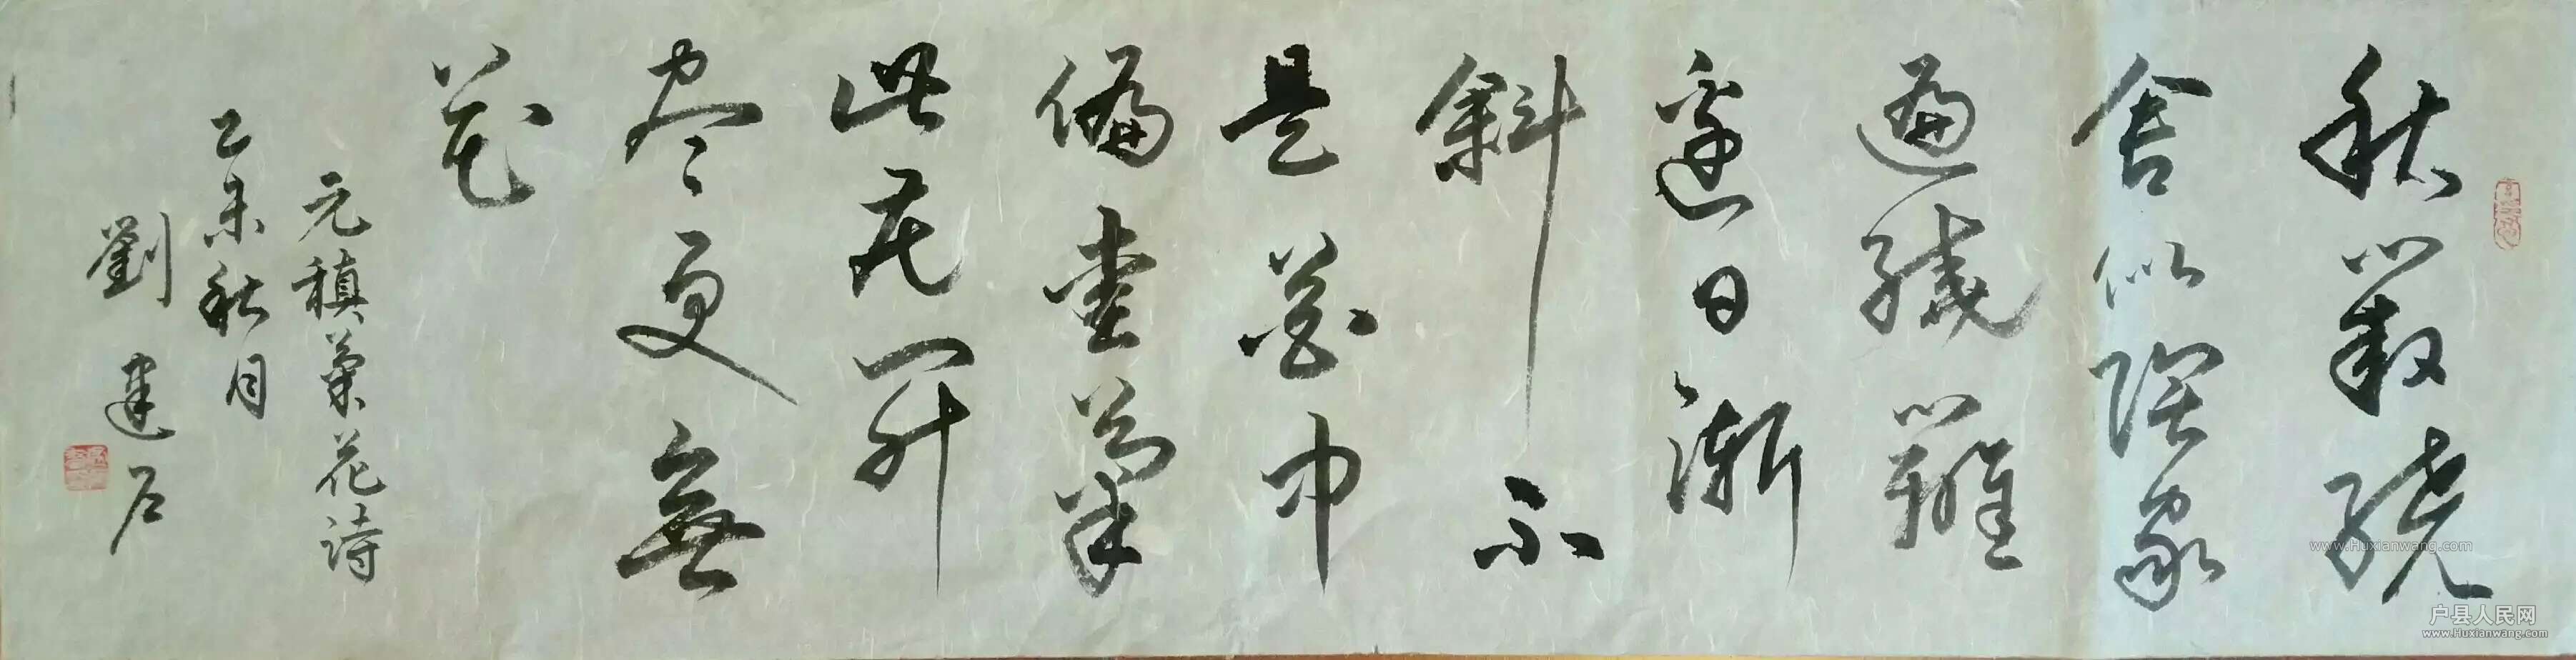 秋叢繞
舍似陶家
遍繞籬
邊日漸
斜不
是花中
偏愛菊
此花開
尽更無
花
元稹菊花詩
乙未秋月
劉建
www.Huxianwang.com
户县人民网
www.Huxianwang.com